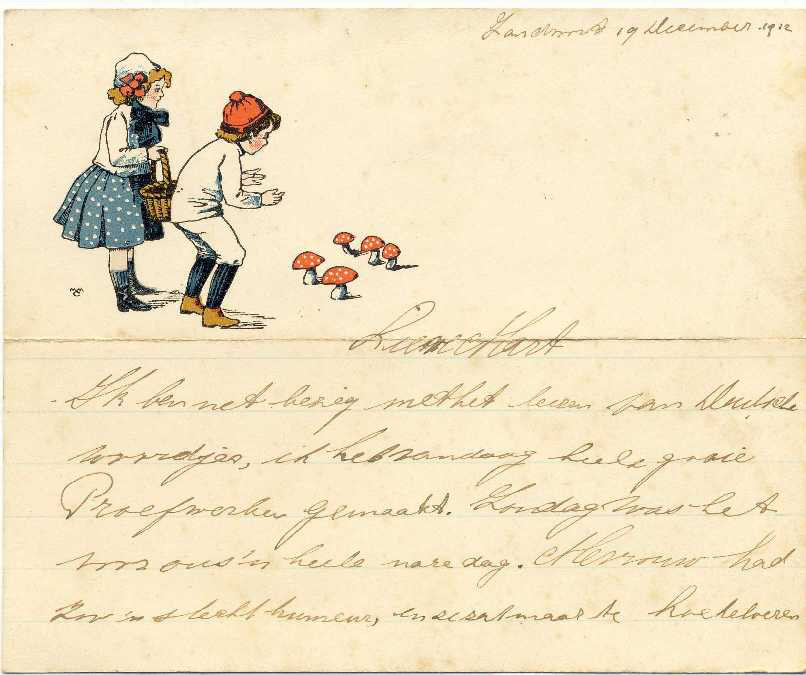 Zandvoort 19 December 1912
Lieve Mart
Ik ben net bezig methet leeren van Duitsche
woordjes, ik heb vandaag heele goeie
Proefwerken gemaakt. Zondag was het
voor ons'n heele nare dag. Mevrouw had
zoo'n slecht humeur, en ze zat maar te